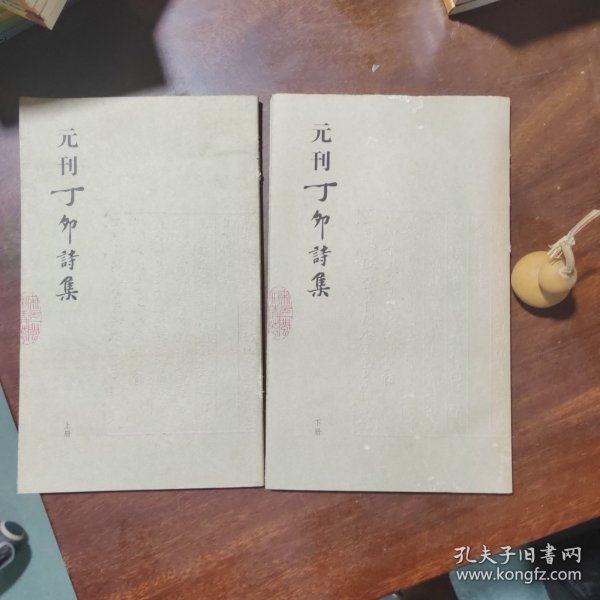 元刊丁卯詩集
上册
元刊丁卯詩集
下册
孔夫子旧書网
www.kongfz.com